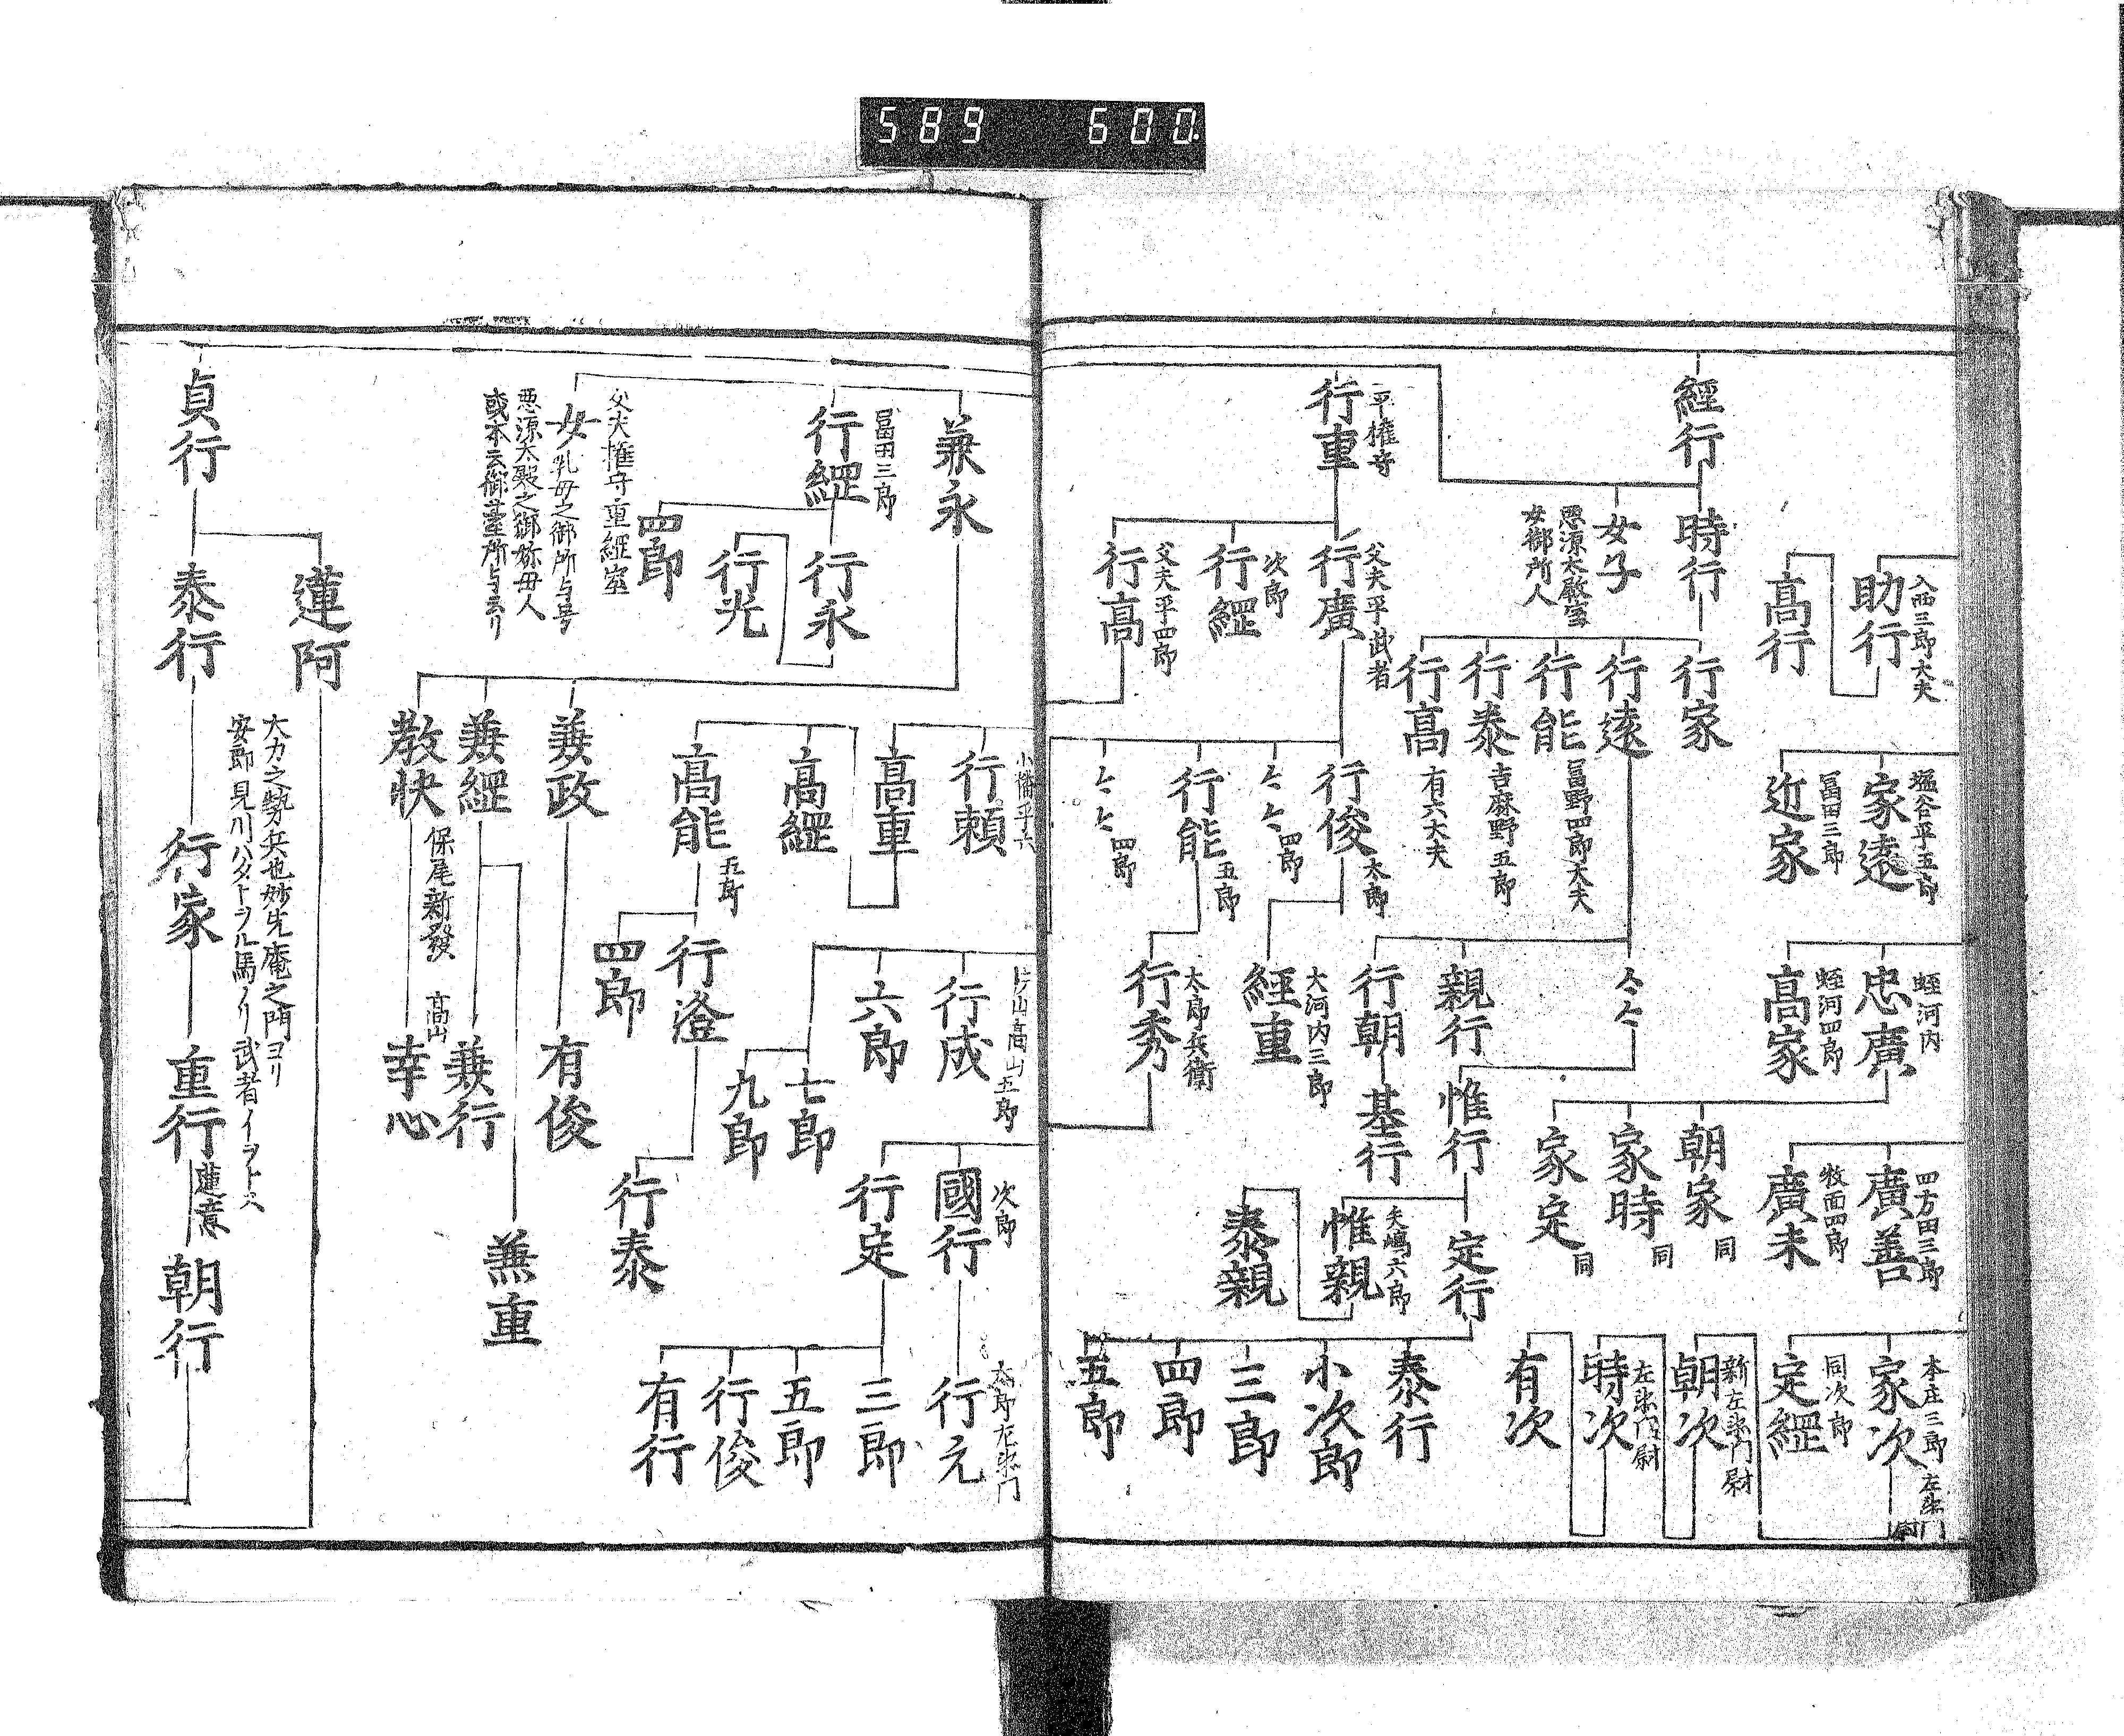 589 600.
助行
入西三郎大夫
高行
家遠
塩谷平五郎
近家
冨田三郎
忠廣
蛭河内
高家
蛭河四郎
廣善
四方田三郎
廣末
牧西四郎
家次
本庄三郎左衛門尉
定經
同次郎
朝次
新左衛門尉
時次
左衛門尉
有次
朝家 同
家時 同
家定 同
經行
時行
女子
悪源太殿室
女御所人
行家
行遠
行能
冨野四郎大夫
行泰
吉麻野五郎
行高
有六大夫
親行
行朝
基行
惟行
定行
惟親
矢嶋六郎
泰親
泰行
小次郎
三郎
四郎
五郎
行重
平権守
行廣
父夫平武者
行經
次郎
行高
父夫平四郎
行俊
太郎
四郎
行能
五郎
四郎
經重
大河内三郎
行秀
太郎兵衛
行頼
小幡平六
高重
高經
高能
五郎
行成
片山高山五郎
六郎
七郎
九郎
行澄
四郎
行泰
國行
次郎
行定
行元
太郎左衛門
三郎
五郎
行俊
有行
兼永
行經
冨田三郎
行永
行光
四郎
父夫権守重經室
女
乳母之御所与号
悪源太殿之御妳母人
或本云御臺所与云リ
兼政
兼經
教快
保尾新發
高山
有俊
兼行
幸心
兼重
貞行
蓮阿
泰行
行家
重行
蓮意
朝行